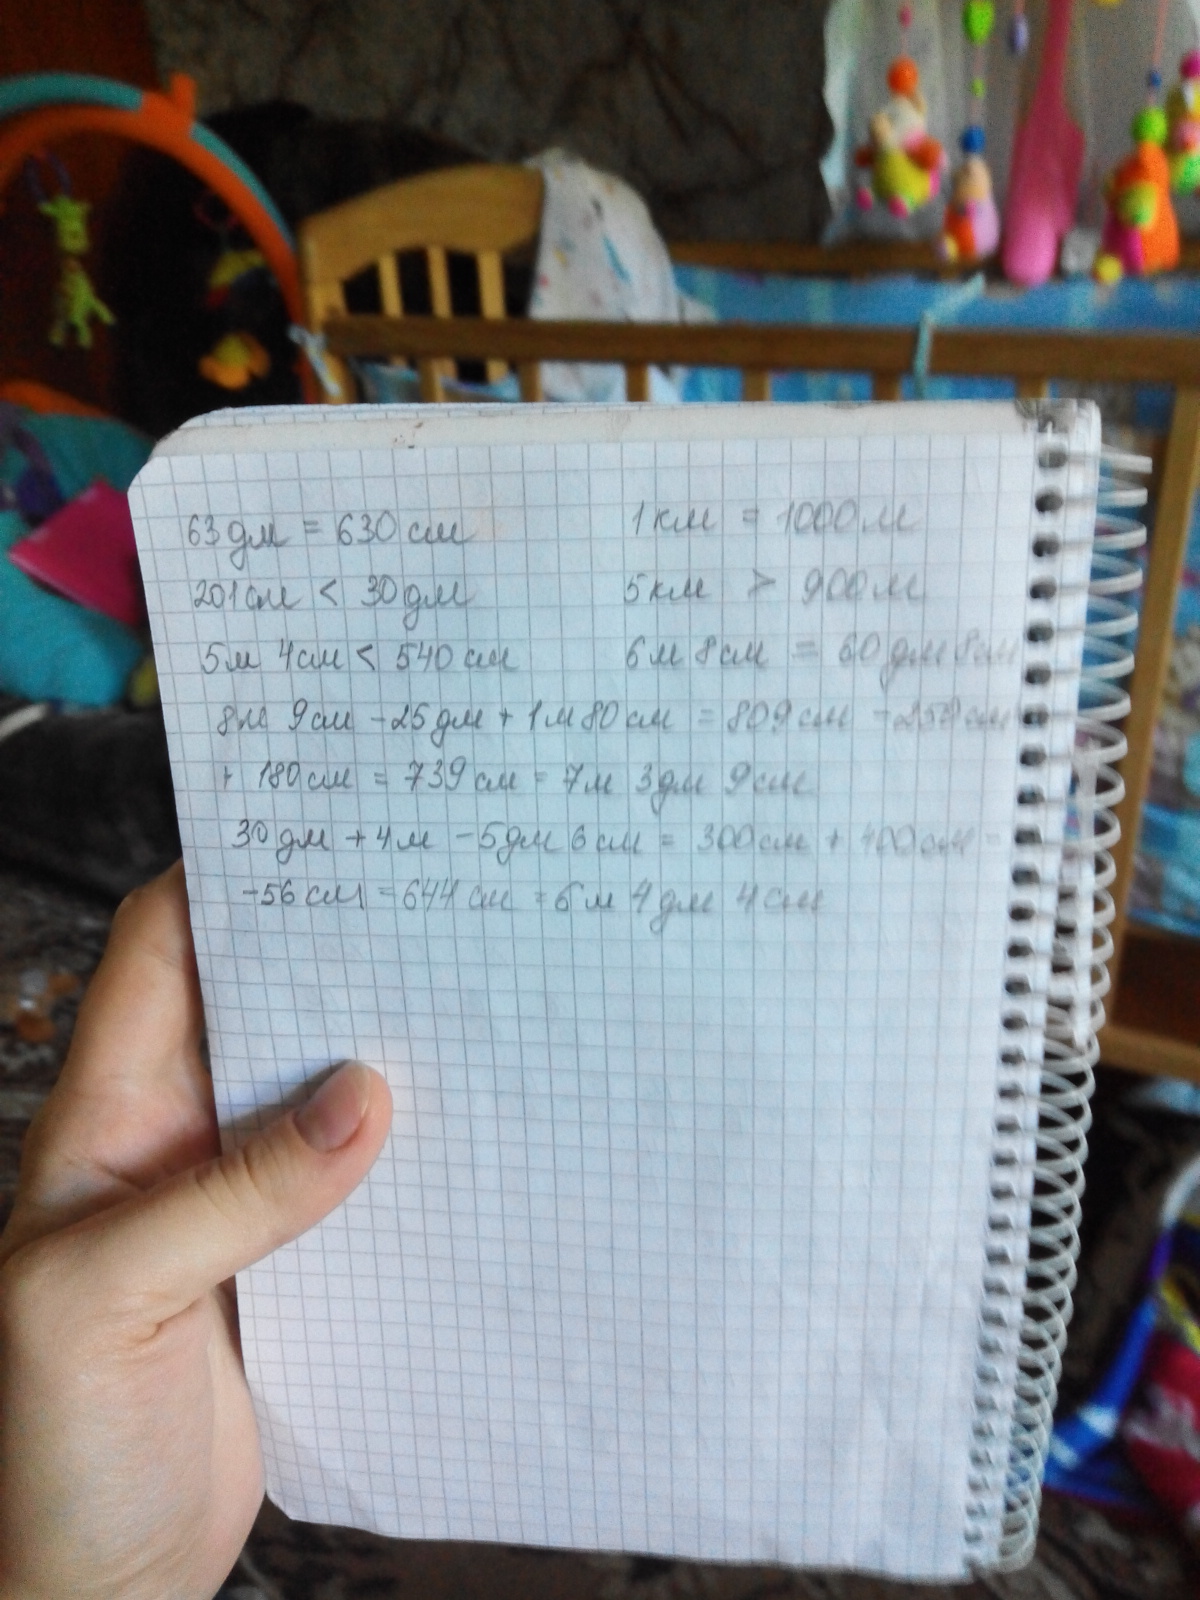 63дм = 630 см 1 км = 1000 м
201 см < 30 дм 5 км > 900 м
5м 4см < 540 см 6м 8см = 60 дм 8см
8м 9см - 25 дм + 1м 80 см = 809 см - 250 см
+ 180 см = 739 см = 7м 3дм 9см
30 дм + 4м - 5дм 6см = 300 см + 400 см -
- 56 см = 644 см = 6м 4дм 4см